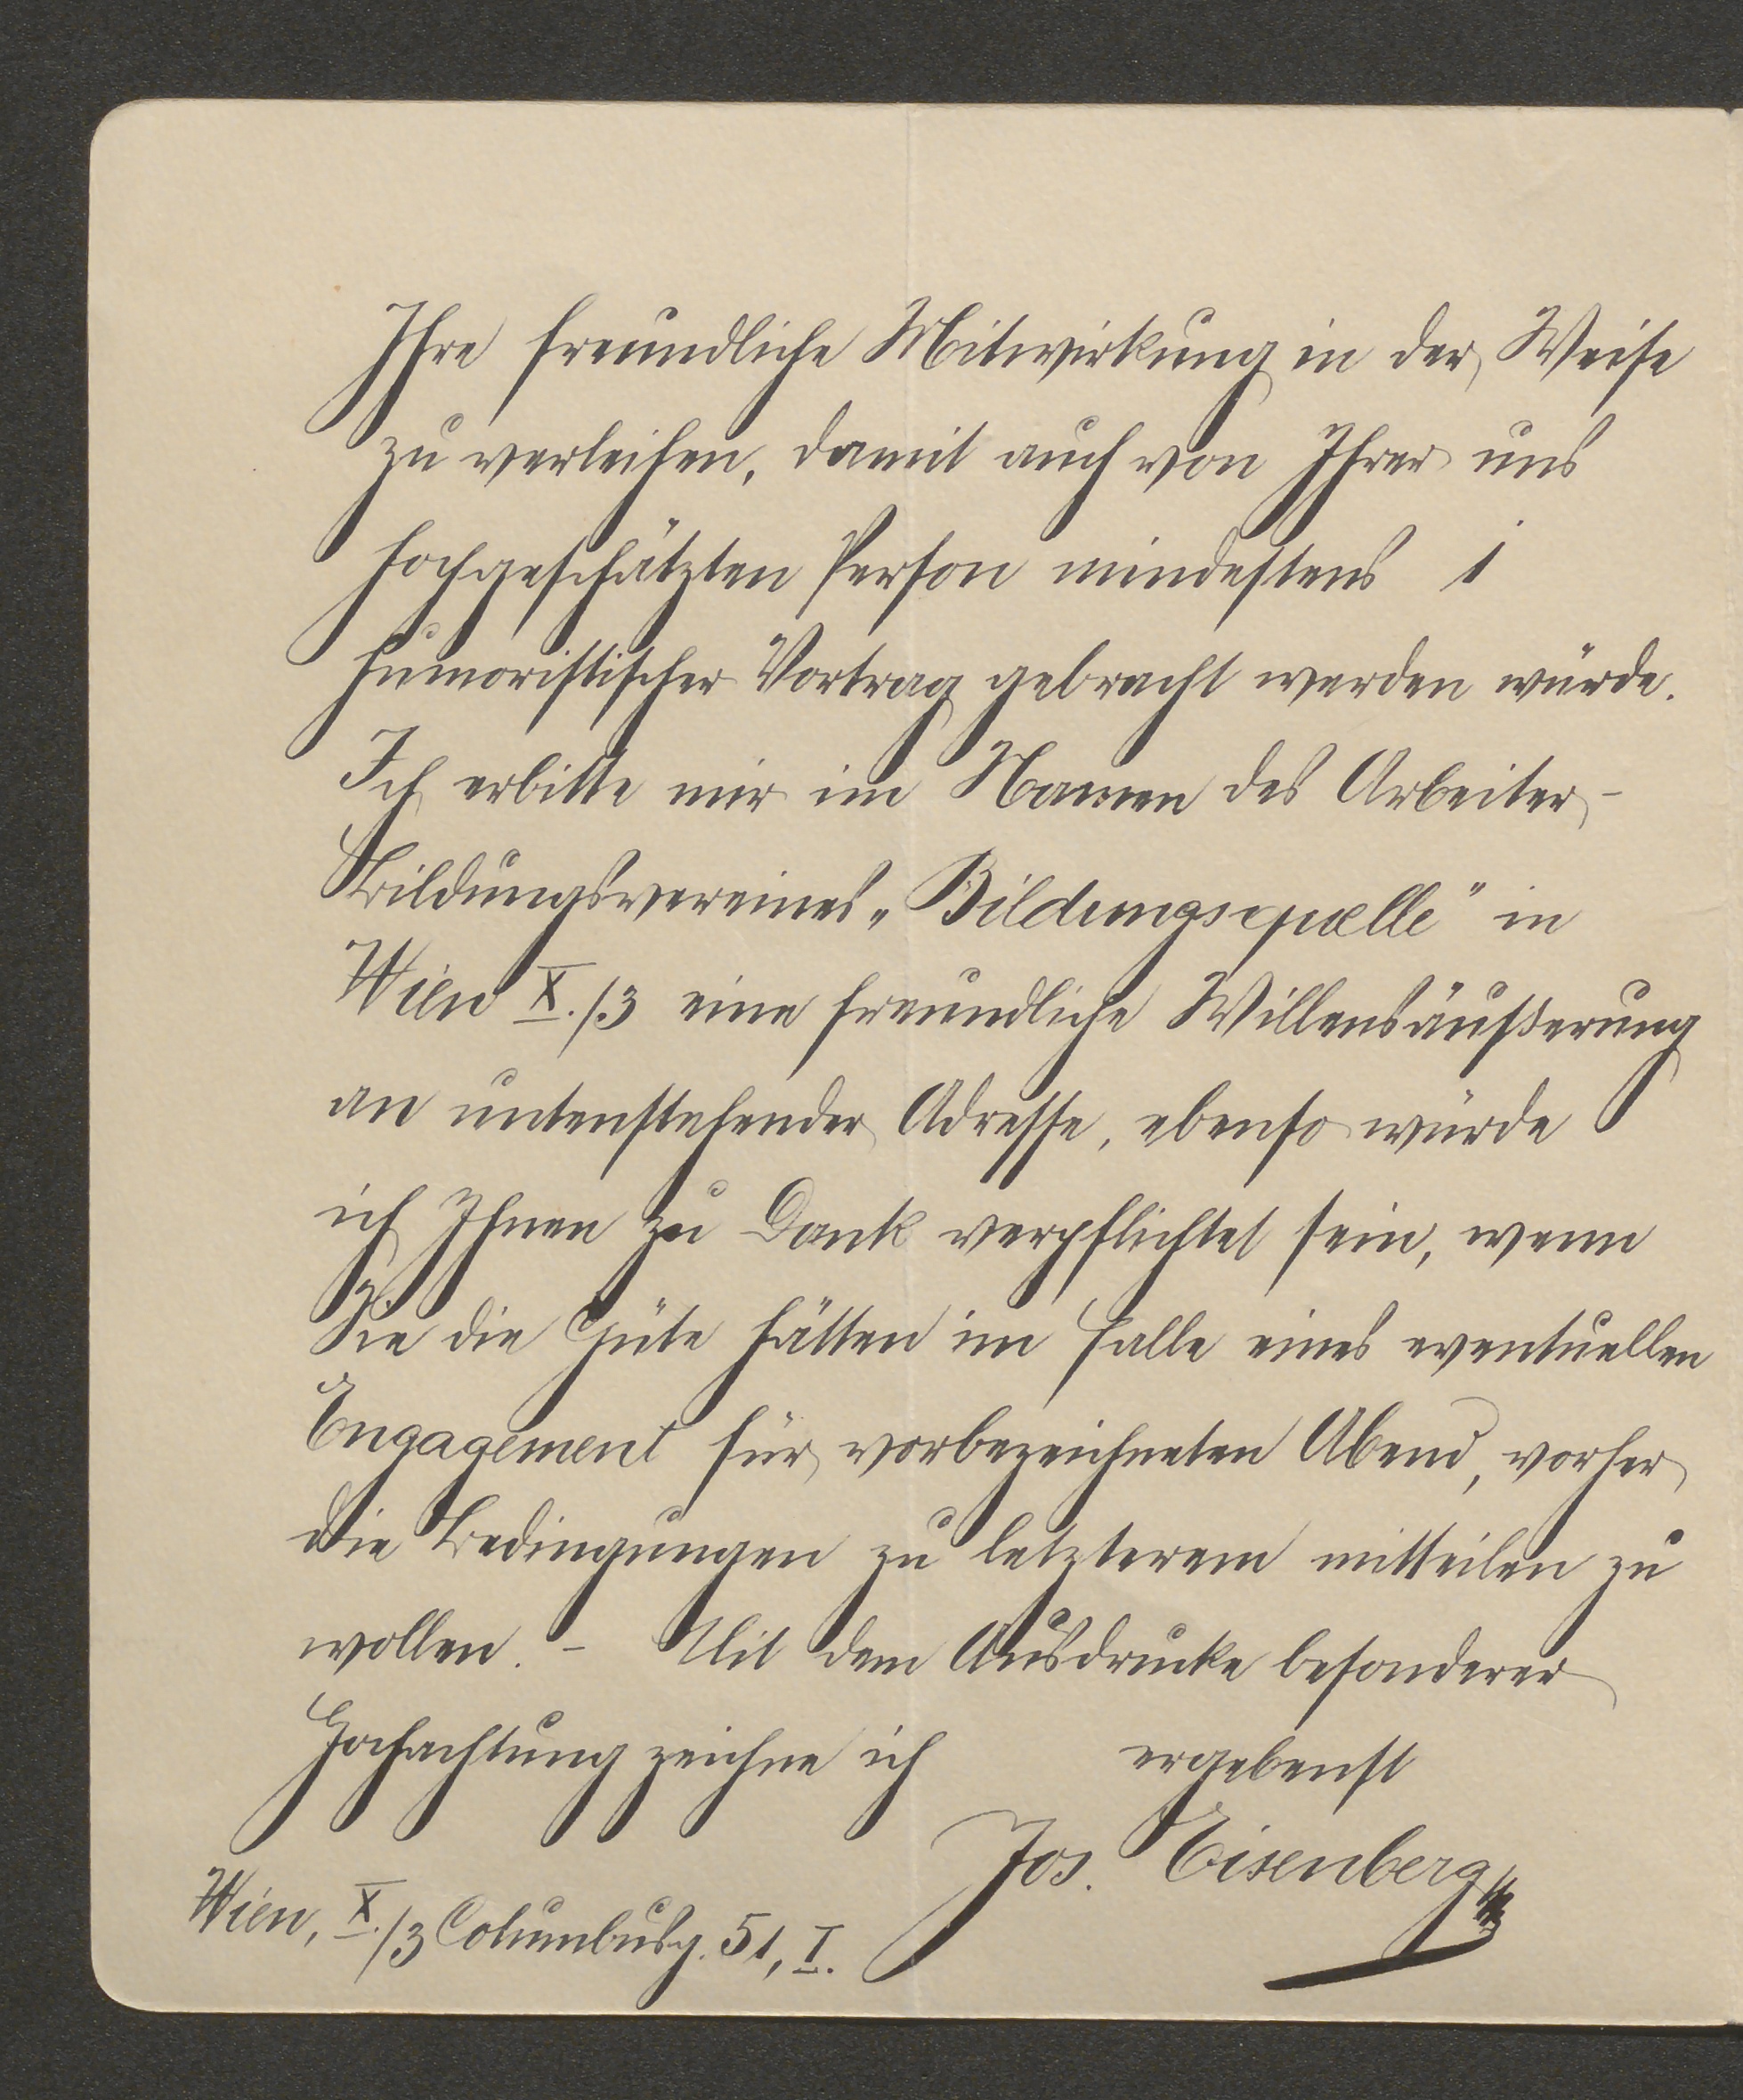 Ihre freundliche Mitwirkung in der Weise
zu verleihen, damit auch von Ihrer uns
hochgeschätzten Person mindestens 1
humoristischer Vortrag gebracht werden würde.
Ich erbitte mir im Namen des Arbeiter-
Bildungsvereines „Bildungsquelle" in
Wien X./3 eine freundliche Willensäußerung
an untenstehender Adresse, ebenso würde
ich Ihnen zu Dank verpflichtet sein, wenn
Sie die Güte hätten im Falle eines eventuellen
Engagement für vorbezeichneten Abend, vorher
die Bedingungen zu letzterem mitteilen zu
wollen. – Mit dem Ausdrucke besonderer
Hochachtung zeichne ich ergebenst
Jos. Eisenberg
Wien, X./3 Columbusg. 51, I.